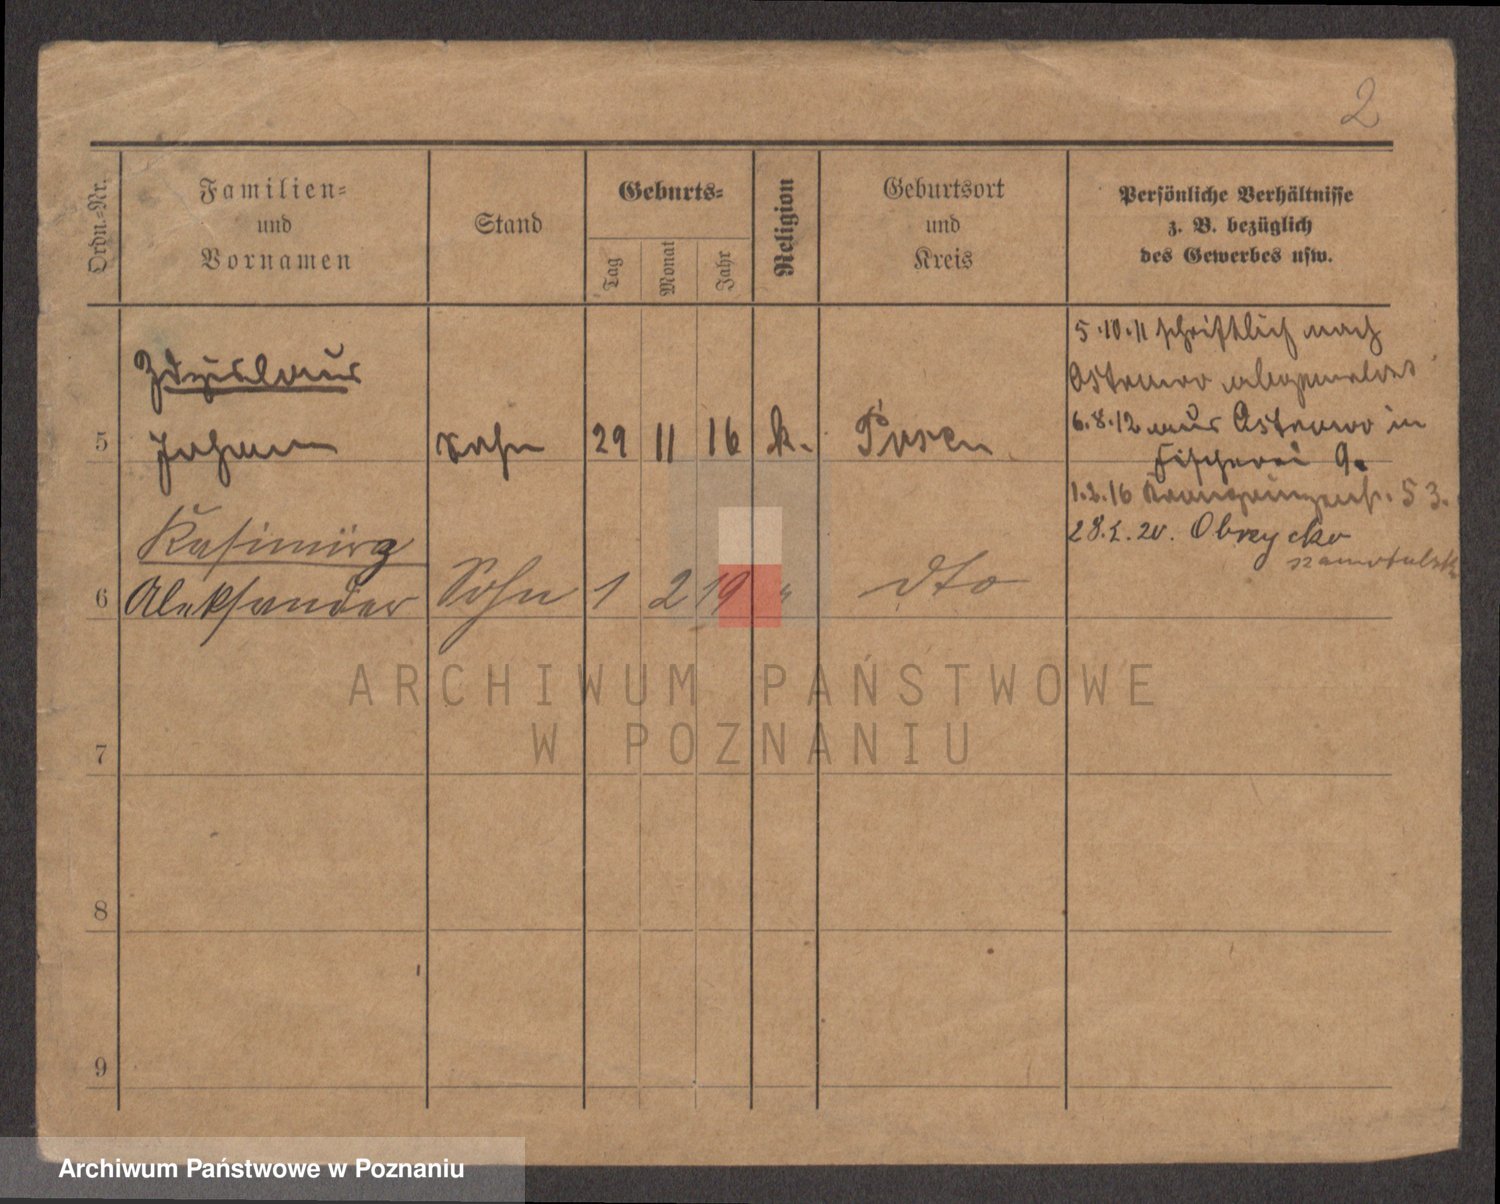 2
Ordn.-Nr.
Familien-
und
Vornamen
Stand
Geburts-
Tag
Monat
Jahr
Religion
Geburtsort
und
Kreis
Persönliche Verhältnisse
z. B. bezüglich
des Gewerbes usw.
5.10.11 schriftlich nach
Ostrowo abgemeldet
6.8.12 aus Ostrowo in
Fischerei 9.
1.2.16 Kronprinzenst. 53.
Zdzislaus
5 Johann Sohn 29 11 16 k. Posen
28.2.20. Obrzycko
Kasimirz
6 Aleksander Sohn 1 2 19 " dto
7
8
9
ARCHIWUM PAŃSTWOWE
W POZNANIU
Archiwum Państwowe w Poznaniu